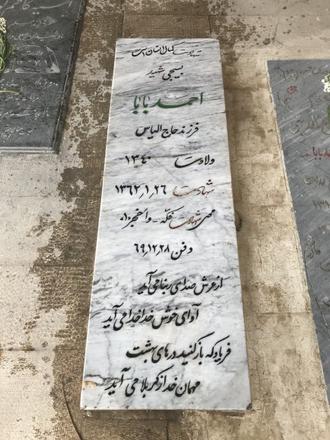 شهادت کمال انسان است
بسیجی شهید
احمد بابا
فرزند حاج الیاس
ولادت ۱۳۴۰
شهادت ۱۳۶۲٫۱٫۲۶
محل شهادت فکه - والفجر ۱۰
دفن ۶۹٫۱۲٫۲۸
از عرش صدای ربنا می آید
آوای خوش خدا خدا می آید
فریاد که باز کنید درهای بهشت
مهمان خدا ز کربلا می آید